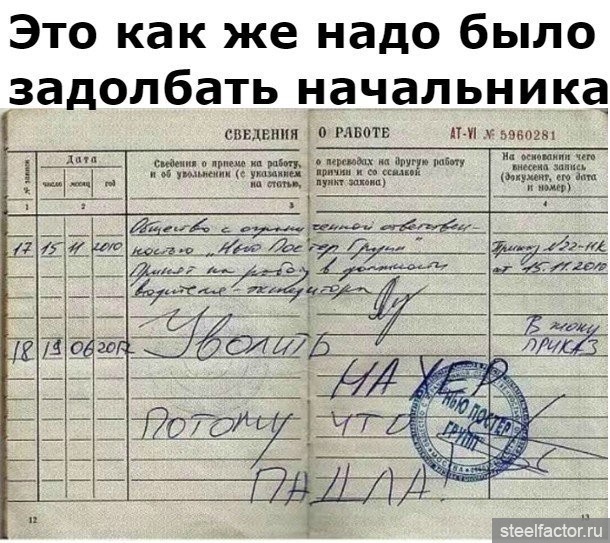 Это как же надо было
задолбать начальника
СВЕДЕНИЯ О РАБОТЕ АТ-VI № 5960281
№ записи
Дата
число месяц год
Сведения о приеме на работу, о переводах на другую работу
и об увольнении (с указанием причин и со ссылкой
на статью, пункт закона)
На основании чего
внесена запись
(документ, его дата
и номер)
1 2 3 4
Общество с ограниченной ответствен-
17 15 11 2010 ностью "Нью Постер Групп" Приказ №22-НК
Принят на работу в должности от 15.11.2010
водителя-экспедитора
18 19 06 2017 Уволить В жопу
ПРИКАЗ
НАХЕР
ПОТОМУ ЧТО
ПАДЛА!
НЬЮ ПОСТЕР
ГРУПП
12 13
steelfactor.ru